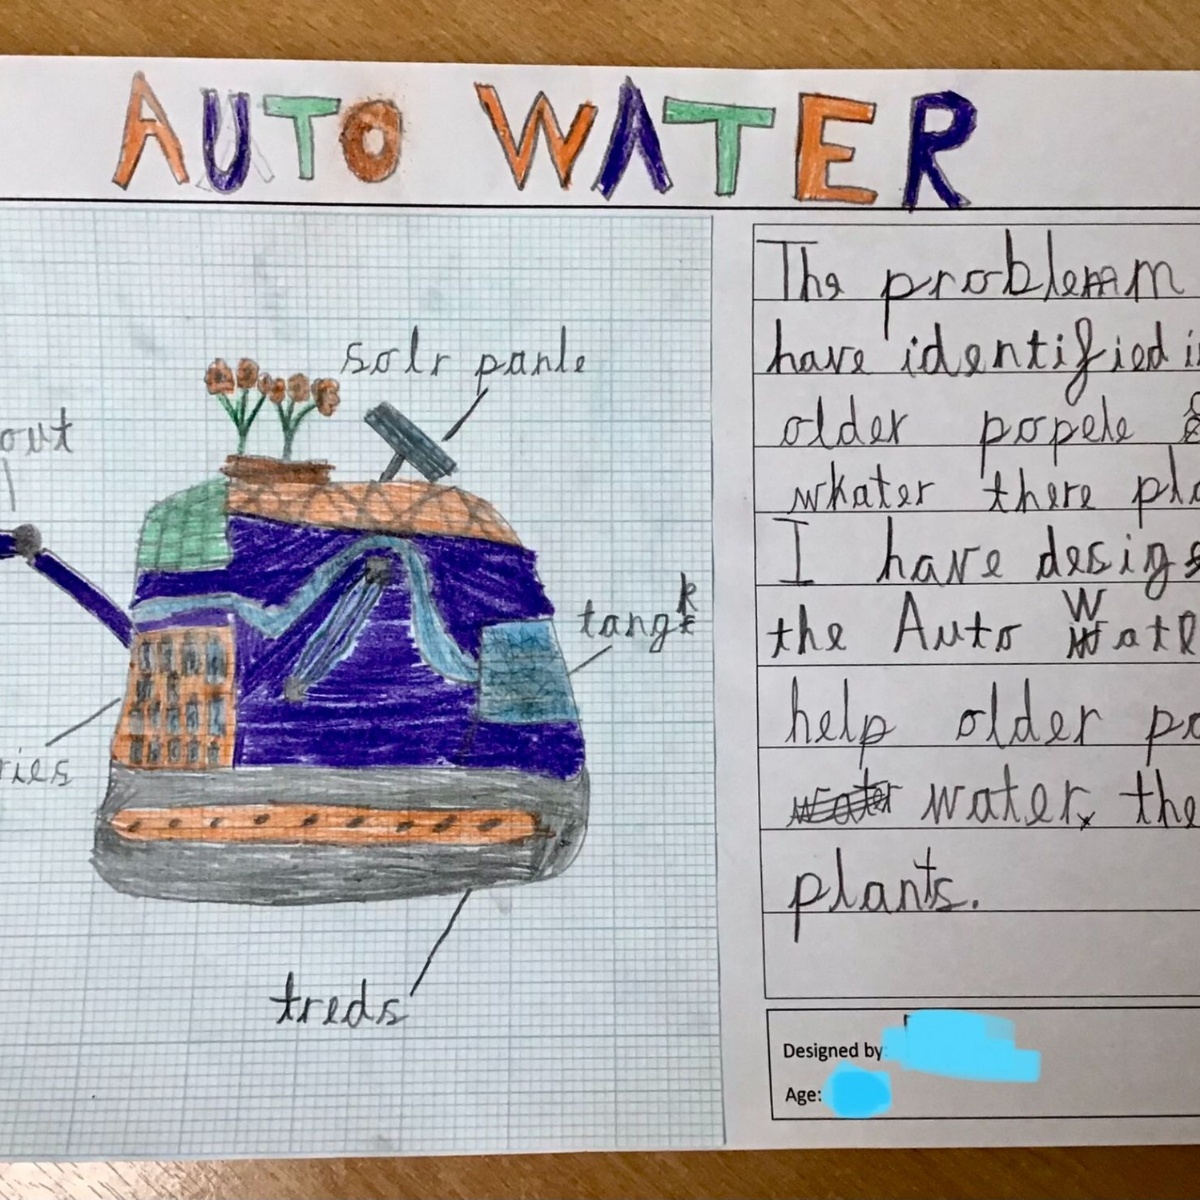 AUTO WATER
solr panle
out
tangk
ries
treds
The problem
have identified i
older popele
wkater there pla
I have desig
the Auto Wate
help older po
water, the
plants.
Designed by:
Age: